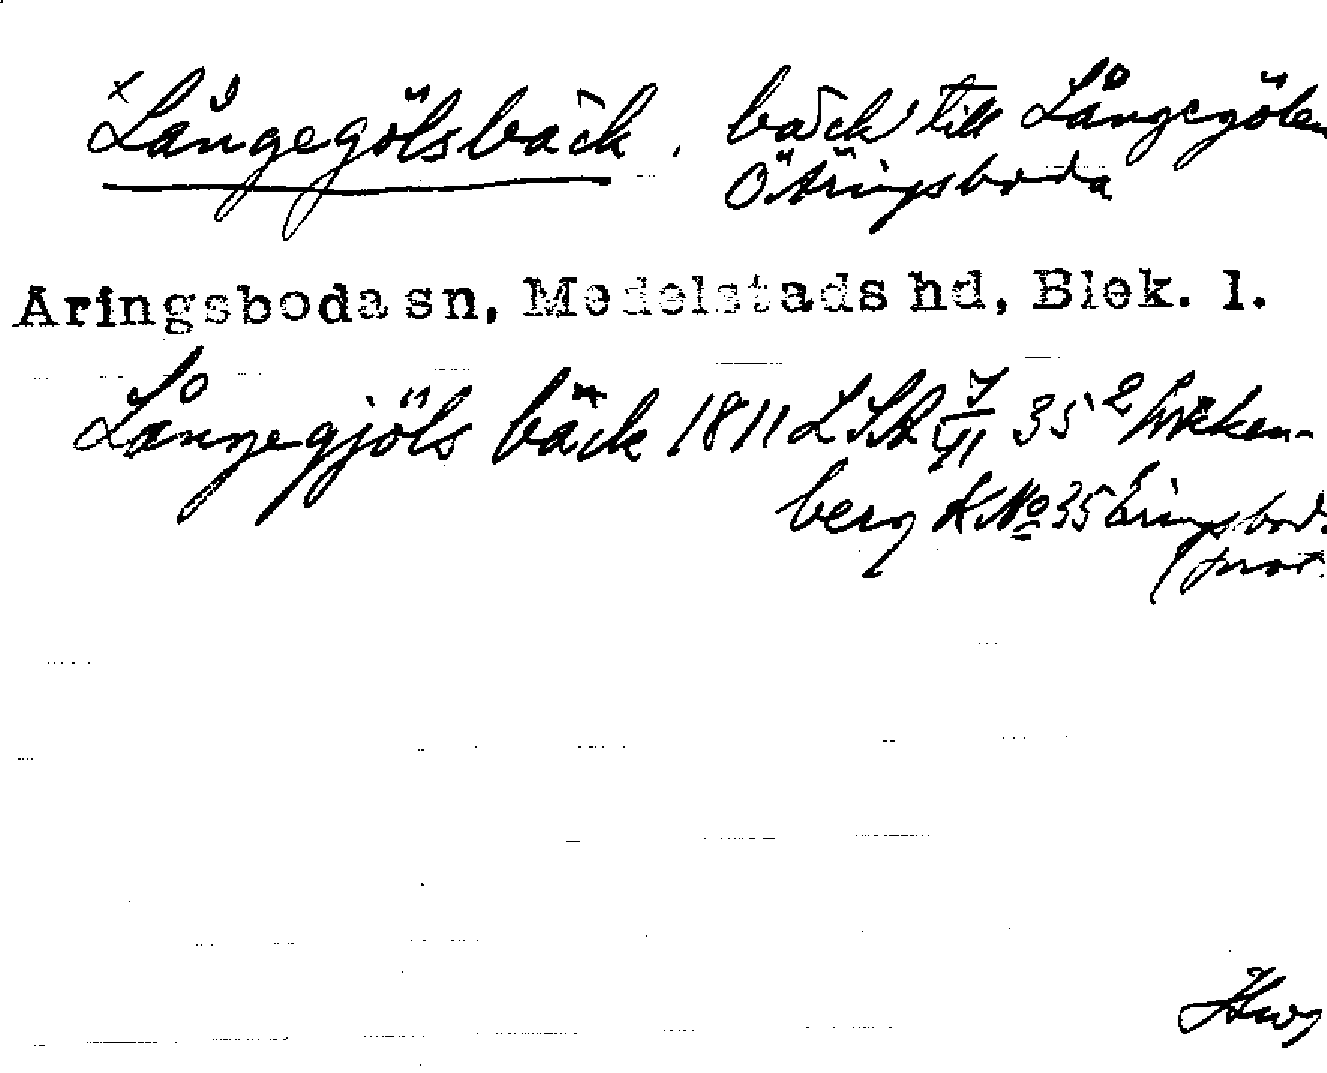 x Långegölsbäck. bäck till Långegölen
Ö Äringsboda
Äringsboda sn, Medelstads hd, Blek. l.
Långegjöls bäck 1811 LSA 35
berg K No 35 Eringsbod.